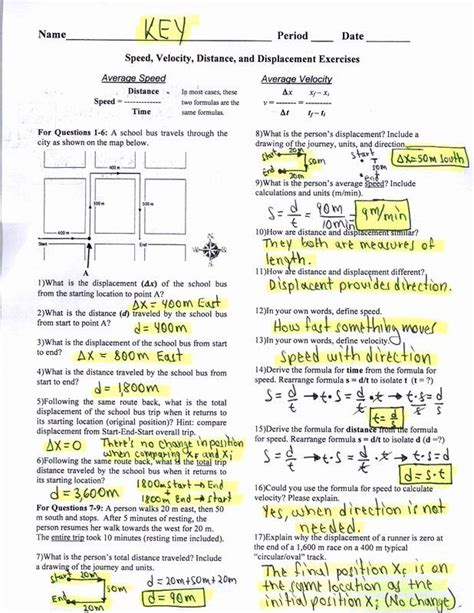 Name KEY Period Date
Speed, Velocity, Distance, and Displacement Exercises
Average Speed
Distance
Speed = ------------
Time
In most cases, these
two formulas are the
same formulas.
Average Velocity
Δx xf – xi
v = -------- = --------
Δt tf – ti
For Questions 1-6: A school bus travels through the
city as shown on the map below.
400 m
500 m
500 m
400 m
Start
End
A
1)What is the displacement (Δx) of the school bus
from the starting location to point A?
ΔX = 400m East
2)What is the distance (d) traveled by the school bus
from start to point A?
d = 400m
3)What is the displacement of the school bus from start
to end?
ΔX = 800m East
4)What is the distance traveled by the school bus from
start to end?
d = 1,800m
5)Following the same route back, what is the total
displacement of the school bus trip when it returns to
its starting location (original position)? Hint: compare
displacement from Start-End-Start overall trip.
ΔX=0 There's no change in position
when comparing XF and Xi
6)Following the same route back, what is the total
distance traveled by the school bus when it returns to
its starting location?
d = 3,600m
1800m start → End
+ 1800m End → start
For Questions 7-9: A person walks 20 m east, then 50
m south and stops. After 5 minutes of resting, the
person resumes her walk towards the west for 20 m.
The entire trip took 10 minutes (resting time included).
7)What is the person's total distance traveled? Include
a drawing of the journey and units.
start 20m
50m
End 20m
d = 20m+50m+20m
d = 90m
8)What is the person's displacement? Include a
drawing of the journey, units, and direction.
start 20m
50m
End 20m
start
50m
end
ΔX=50m South
9)What is the person's average speed? Include
calculations and units (m/min).
S = d/t = 90m/10min = 9m/min
10)How are distance and displacement similar?
They both are measures of
length.
11)How are distance and displacement different?
Displacent provides direction.
12)In your own words, define speed.
How fast something moves
13)In your own words, define velocity.
speed with direction
14)Derive the formula for time from the formula for
speed. Rearrange formula s = d/t to isolate t (t = ?)
S = d/t → t·S = d/t · t → t·S = d
t = d/s
15)Derive the formula for distance from the formula
for speed. Rearrange formula s = d/t to isolate d (d =?)
S = d/t → t·S = d/t · t → t·S=d
d = s·t
16)Could you use the formula for speed to calculate
velocity? Please explain.
Yes, when direction is not
needed.
17)Explain why the displacement of a runner is zero at
the end of a 1,600 m race on a 400 m typical
"circular/oval" track.
The final position XF is on
the same location as the
initial position Xi (No change)